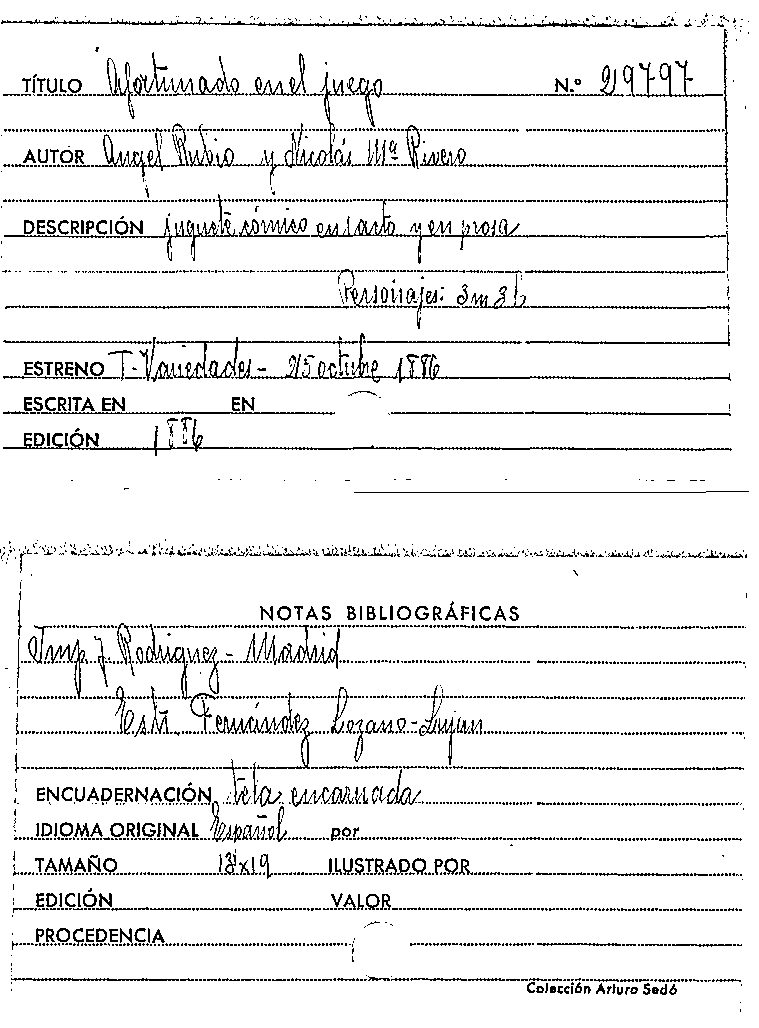 TÍTULO Afortunado en el juego N.º 29797
AUTOR Angel Rubio y Nicolás Mª Rivero
DESCRIPCIÓN juguete cómico en 1 acto y en prosa
Personajes: 3m 3h
ESTRENO T. Variedades - 25 octubre 1886
ESCRITA EN EN
EDICIÓN 1886
NOTAS BIBLIOGRÁFICAS
Imp. J. Rodriguez - Madrid
Estr. Fernández Lozano - Lujan
ENCUADERNACIÓN tela encarnada
IDIOMA ORIGINAL Español por
TAMAÑO 13x19 ILUSTRADO POR
EDICIÓN VALOR
PROCEDENCIA
Colección Arturo Sedó